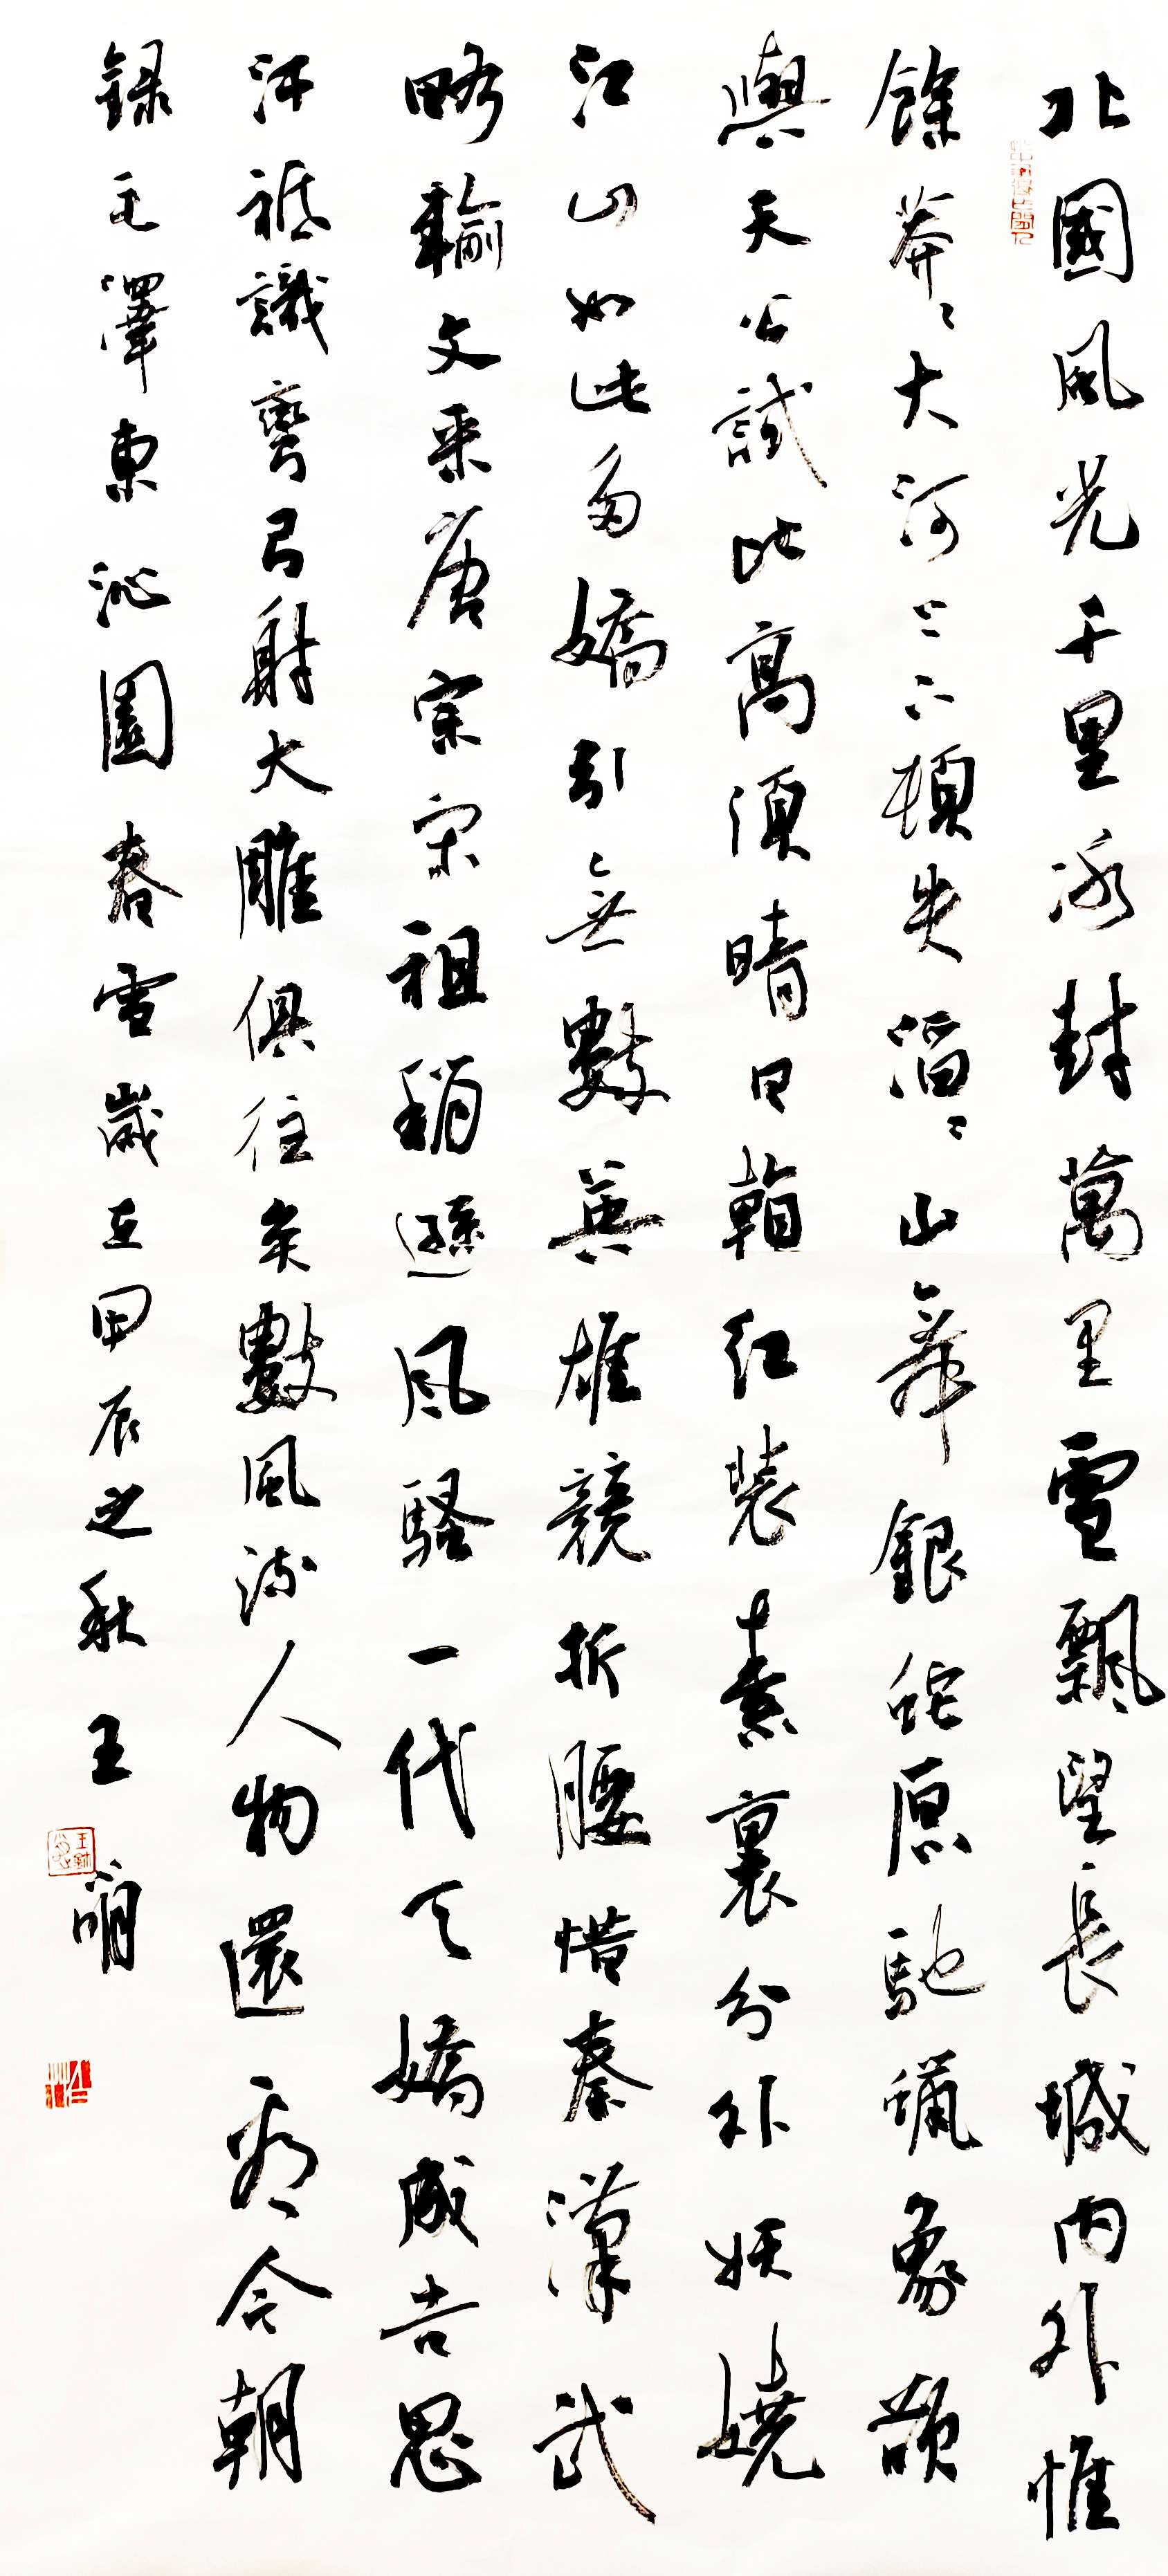 北國風光千里冰封萬里雪飄望長城內外惟
餘莽〻大河上下頓失滔〻山舞銀蛇原馳蠟象欲
與天公試比高須晴日看紅裝素裹分外妖嬈
江山如此多嬌引無數英雄競折腰惜秦漢武
略輸文采唐宗宋祖稍遜風騷一代天嬌成吉思
汗祇識彎弓射大雕俱往矣數風流人物還看今朝
錄毛澤東沁園春雪歲在甲辰之秋王